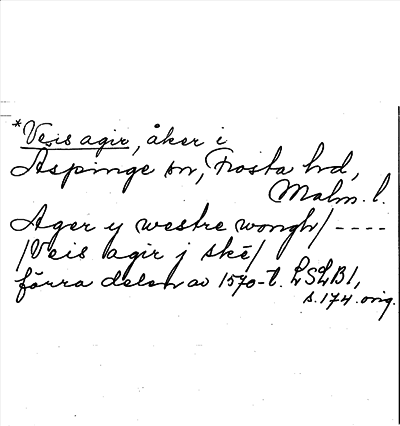 *Veis agir, åker i
Aspinge sn, Frosta hd,
Malm. l.
Ager y westre wongh/ ----
/Veis agir j skē/
förra delen av 1570-t. LSLB1,
s. 174. orig.